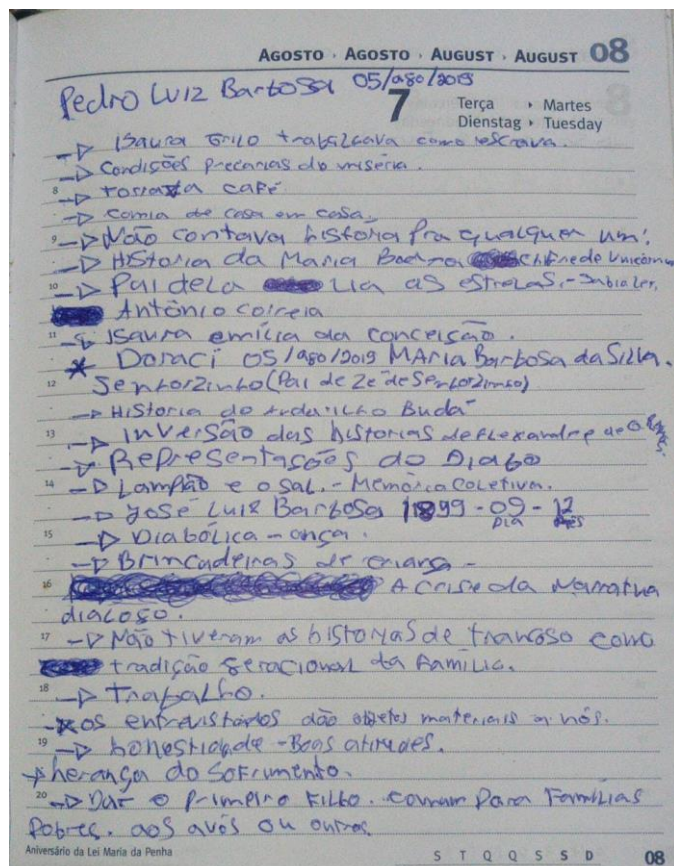 AGOSTO · AGOSTO · AUGUST · AUGUST 08
Pedro Luiz Barbosa 05/ago/2019
7
Terça › Martes
Dienstag › Tuesday
Isaura Grilo trabalhava como escrava.
Condições precarias do miséria.
8 torrava café
Comia de casa em casa.
9 Não contava história pra qualquer um!
História da Maria chifre de Unicórnio
10 Pai dela lia as estrelas. - Sabia ler.
Antônio Correia
11 Isaura emília da conceisção.
Doraci 05/ago/2019 MAria Barbosa da Silva.
12 Senhorzinho (Pai de Zé de Senhorzinho)
História do Buda
13 inversão das historias de
Representações do Diabo
14 Lampião e o sal. - Memória Coletiva.
José Luiz Barbosa 1899-09-12
Dia Mês
15 Diabólica - onça.
Brincadeiras de criança -
16 A crise da Narrativa
dialogo.
17 Não tiveram as historias de trancoso como
tradição geracional da Família.
18 Trabalho.
os entrevistados dão objetos materiais a nós.
19 honestidade - Boas atitudes.
herança do Sofrimento.
20 Dar o primeiro Filho. Para Famílias
Pobres. aos avós ou outros.
Aniversário da Lei Maria da Penha
S T Q Q S S D 08